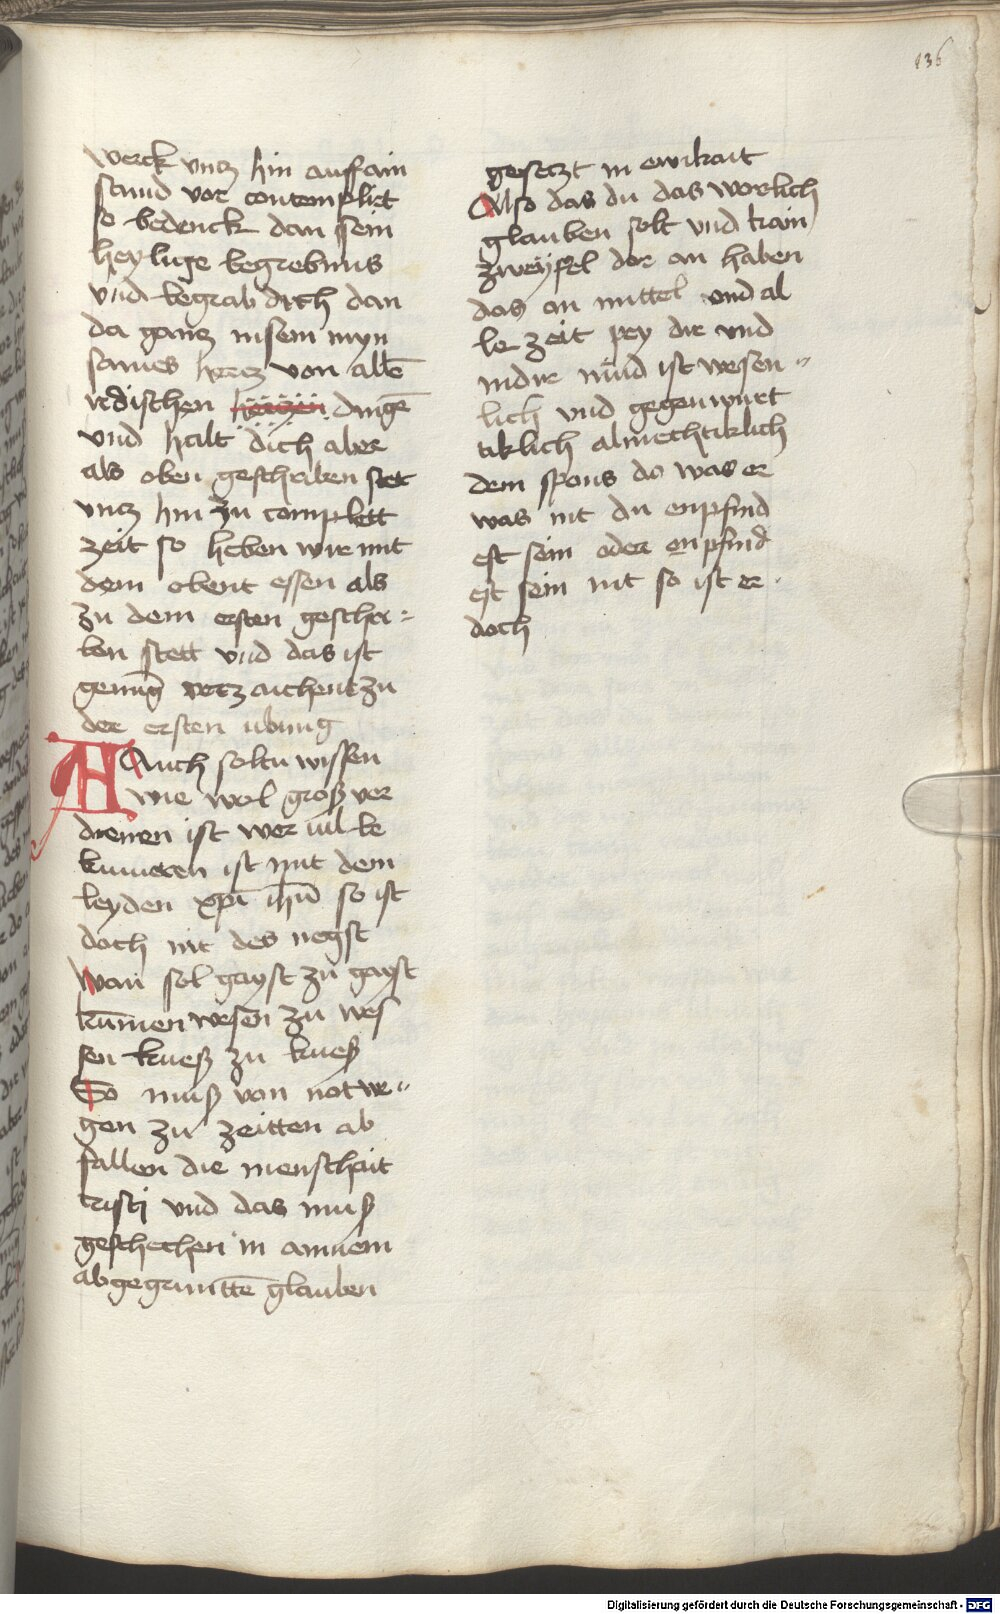 136
werck vncz hin auff ain
stund vor contemplirt
so bedenck dan sein
heylige begrebnus
vnd begrab dich dan
da gancz in sein myn
sames hercz von allē
irdischen herczen dingē
vnd halt dich aber
als oben geschriben stet
vncz hin zu complett
zeit so heben wir mit
dem obent essen als
zu dem ersten geschri=
ben stett vnd das ist
genūg verzaichent zu
der ersten ubung
Auch soltu wissen
wie wol groß ver
dienen ist wer uil be
kumeren ist mit dem
leyden xp̄i ih̄u so ist
doch nit des negst
wan sol gayst zu gayst
kūmen wesen zu wes
sen krues zu krues
So muß von not we=
gen zu zeitten ab
fallen die menschait
cristi vnd das muß
geschechen in ainem
abgegruntē glauben
gesetzt in ewikait
Also das du das worlich
glauben solt vnd kain
zweyfel dor an haben
das an mittel vnd al
le zeit pey dir vnd
in dir mind ist wesen=
lich vnd gegenwurt
tiklich almechtiklich
dem spons do was er
was nit du enpfind
est sein oder enpfind
est sein nit so ist er
doch
Digitalisierung gefördert durch die Deutsche Forschungsgemeinschaft - DFG